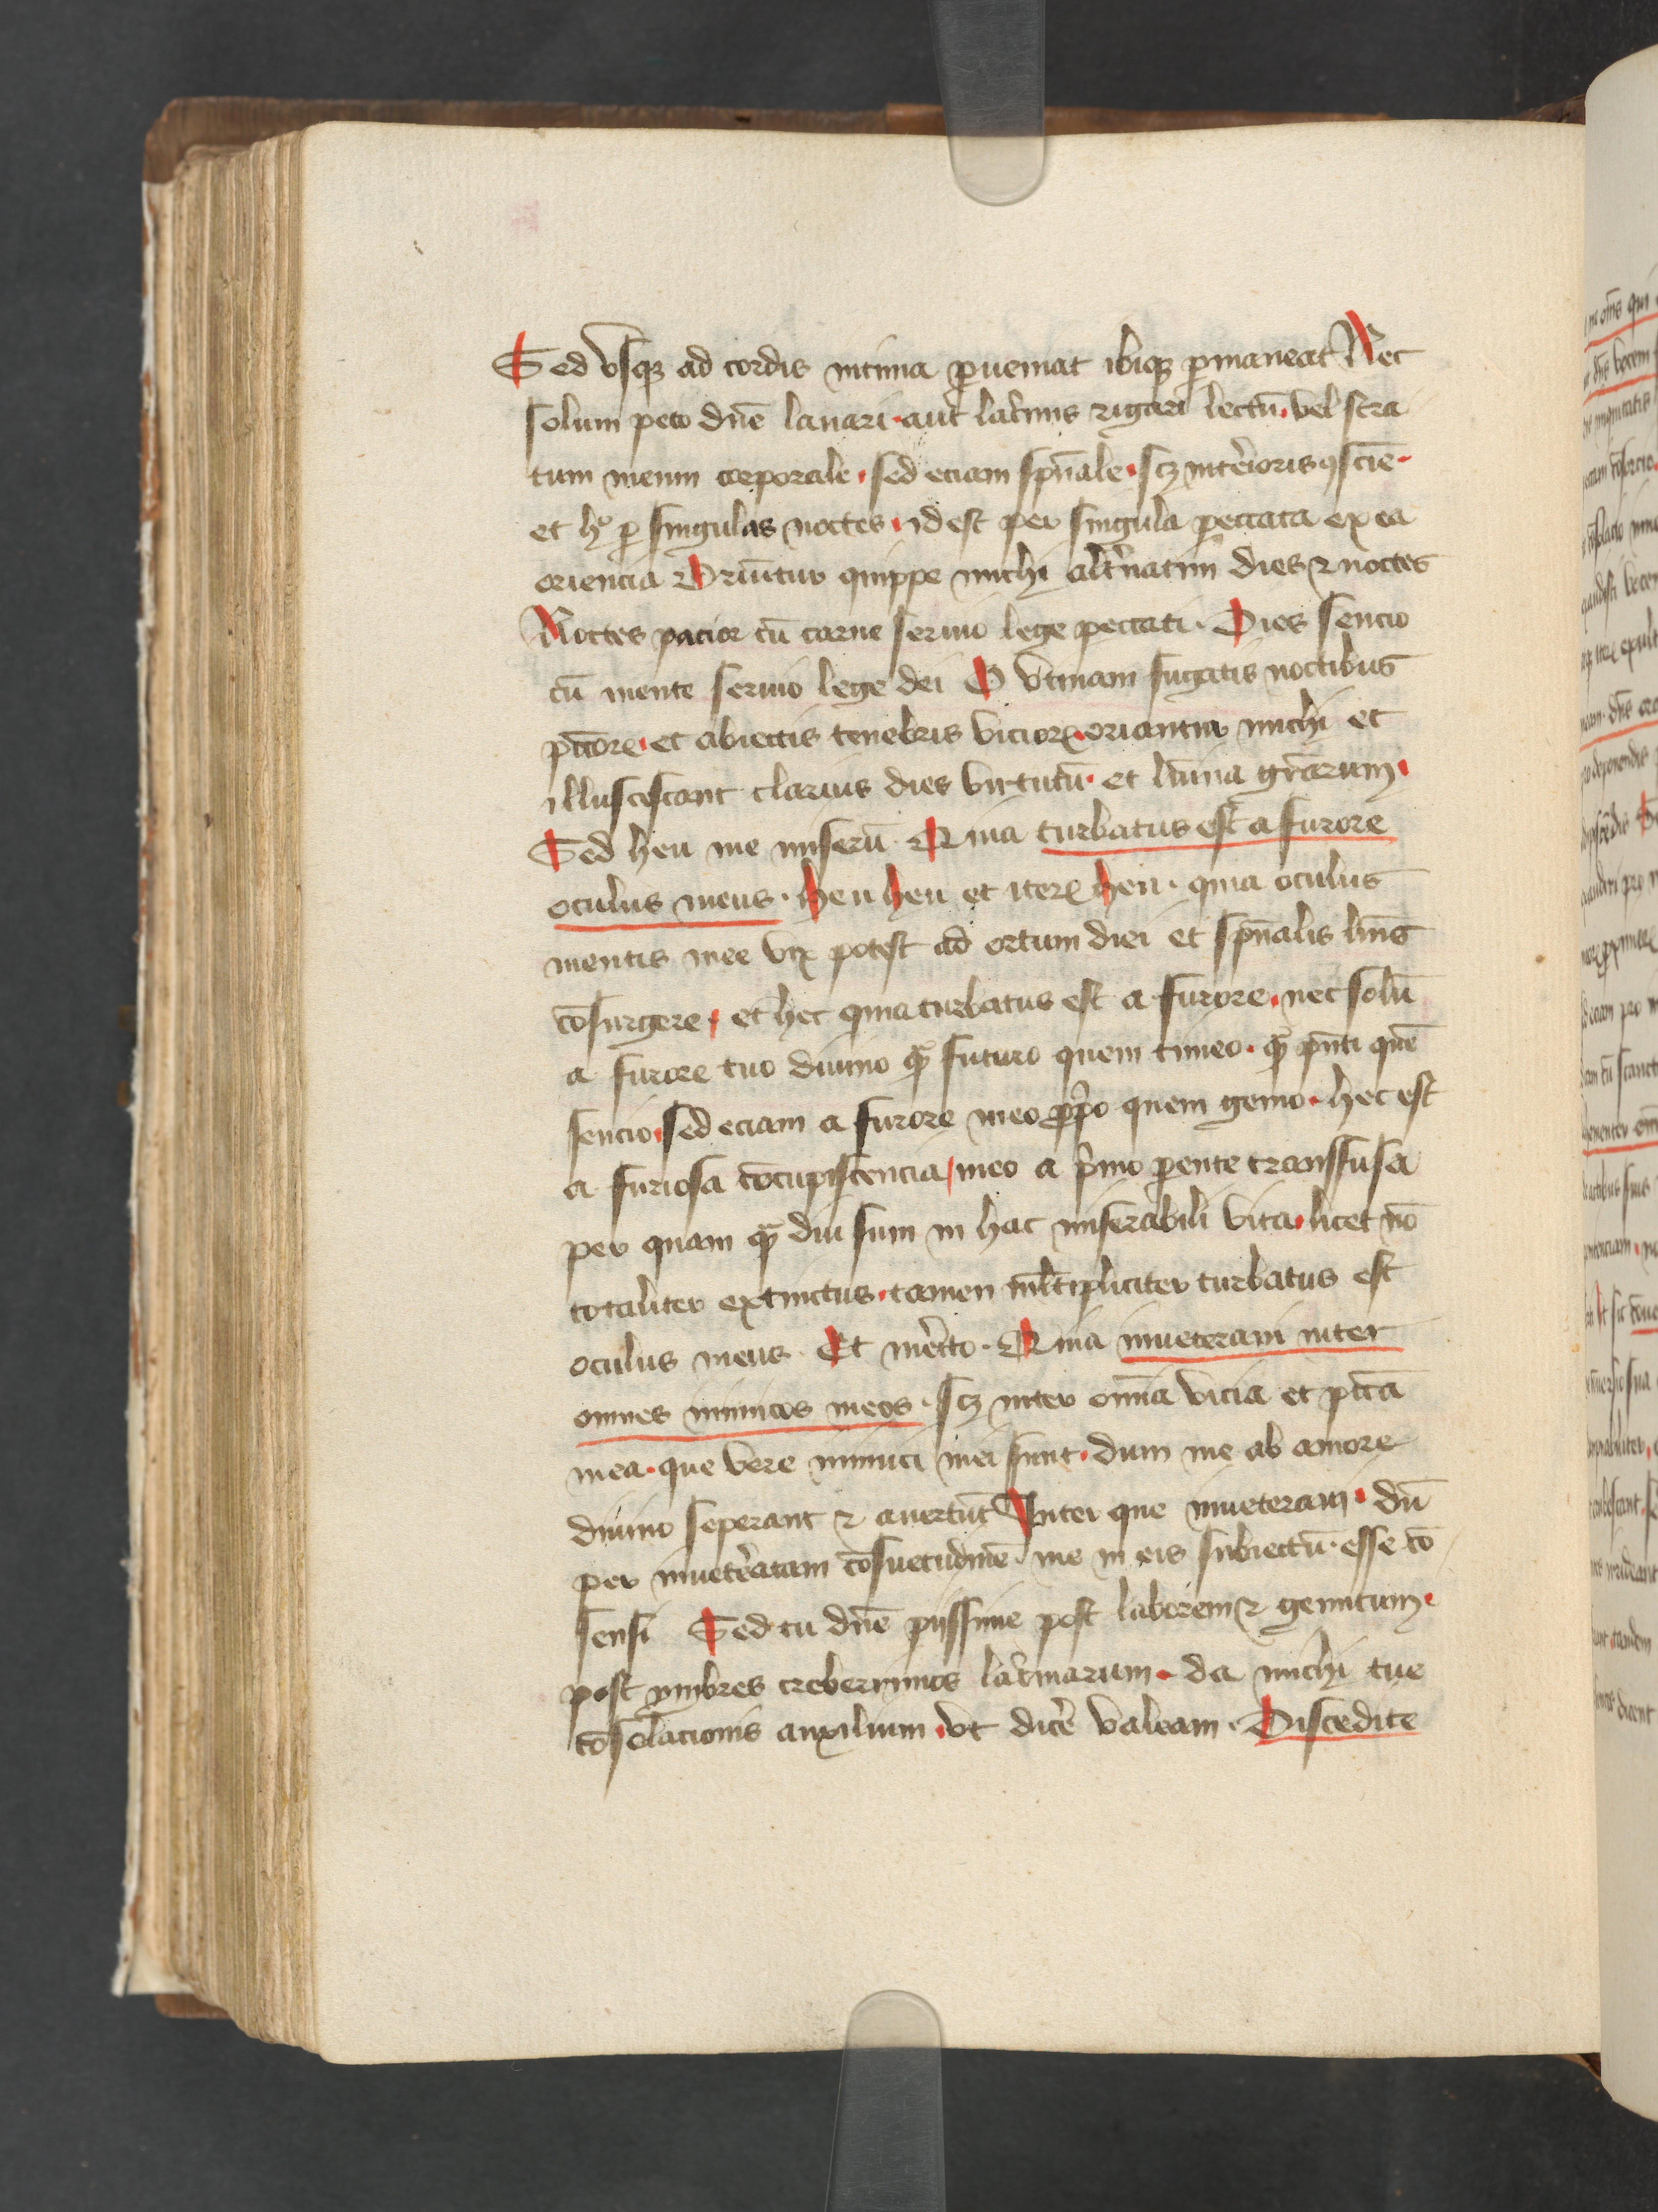 Sed vsqꝫ ad cordis intima ꝑueniat ibiqꝫ ꝑmaneat Nec
solum peto dn̄e lauari · aut lac̄mis rigari lectū · vel stra
tum meum corporale · sed eciam spūale · scꝫ int̾ioris ꝯscīe ·
et hͦ ꝑ singulas noctes · id est per singula peccata ex ea
oriencia Oriūtur quippe michi alt̾natim dies ⁊ noctes
Noctes pacior cū carne seruio lege peccati · Dies sencio
cū mente seruio lege dei O vtinam fugatis noctibus
pccōꝝ · et abiectis tenebris vicioꝝ · oriantur michi et
illuscescant clarius dies virtutū · et lūina gr̄arum ·
Sed heu me miserū · Quia turbatus est a furore
oculus meus · heu heu et iteꝝ heu · quia oculus
mentis mee vix potest ad ortum diei et spūalis lūīs
cōsurgere · et hec quia turbatus est a furore · nec solū
a furore tuo diuino qͣ futuro quem timeo · qͣ pn̄ti quē
sencio · sed eciam a furore meo ꝓpͥo quem gemo · hec est
a furiosa cōcupiscencia / meo a pͥmo ꝑente transfusa
per quam qͣ diu sum in hac miserabili vita · licet nō
totaliter extinctus · tamen ml̄tipliciter turbatus est
oculus meus · Et mer̄to · Quia inueteraui inter
omnes inimicos meos · scꝫ inter om̄ia vicia et pccā
mea · que vere inimici mei sunt · dum me ab amore
diuino seperant ⁊ auertūt Inter que inueteraui · dū
per inuet̾atam cōsuetudinē · me in eis subiectū · esse cō
sensi Sed tu dn̄e pijssime post laborem ⁊ gemitum ·
post ymbres creberrimos lac̄marum · da michi tue
cōsolacionis auxilium · vt dice̾ valeam · Discedite